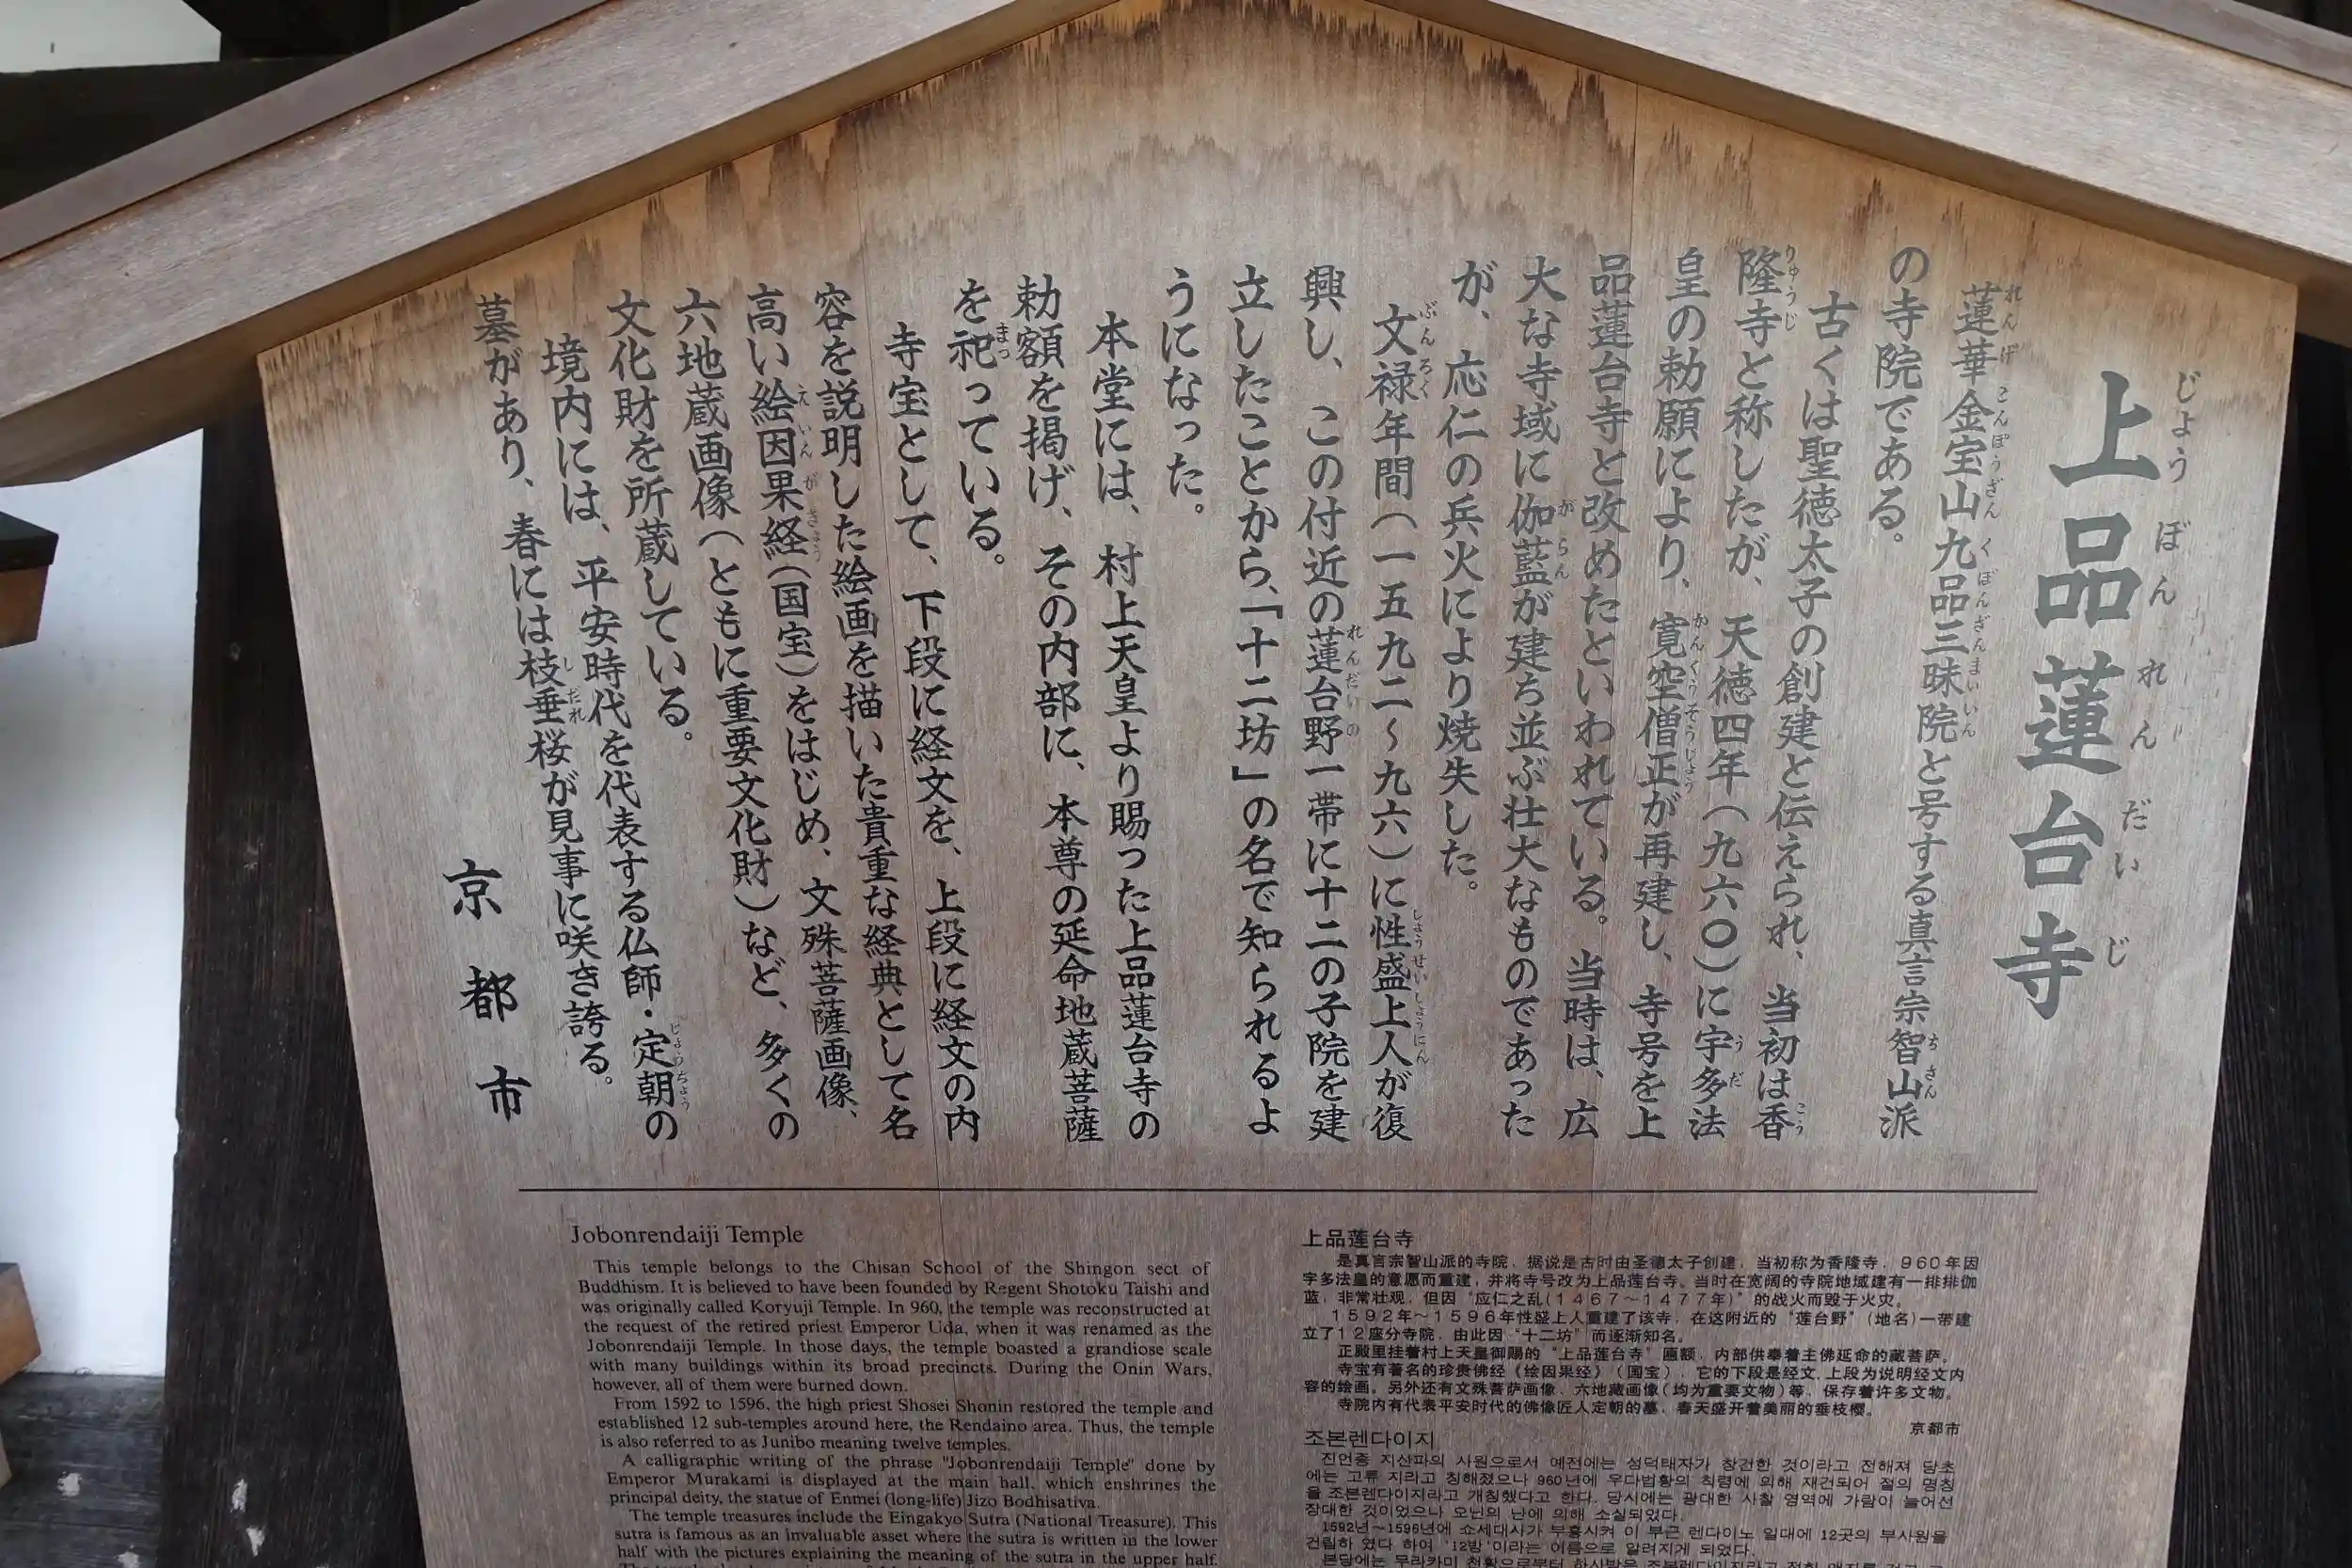 上品蓮台寺
じょうぼんれんだいじ
蓮華金宝山九品三昧院と号する真言宗智山派
の寺院である。
古くは聖徳太子の創建と伝えられ、当初は香
隆寺と称したが、天徳四年(九六〇)に宇多法
皇の勅願により、寛空僧正が再建し、寺号を上
品蓮台寺と改めたといわれている。当時は、広
大な寺域に伽藍が建ち並ぶ壮大なものであった
が、応仁の兵火により焼失した。
文禄年間(一五九二~九六)に性盛上人が復
興し、この付近の蓮台野一帯に十二の子院を建
立したことから、「十二坊」の名で知られるよ
うになった。
本堂には、村上天皇より賜った上品蓮台寺の
勅額を掲げ、その内部に、本尊の延命地蔵菩薩
を祀っている。
寺宝として、下段に経文を、上段に経文の内
容を説明した絵画を描いた貴重な経典として名
高い絵因果経(国宝)をはじめ、文殊菩薩画像、
六地蔵画像(ともに重要文化財)など、多くの
文化財を所蔵している。
境内には、平安時代を代表する仏師・定朝の
墓があり、春には枝垂桜が見事に咲き誇る。
京都市
Jobonrendaiji Temple
This temple belongs to the Chisan School of the Shingon sect of
Buddhism. It is believed to have been founded by Regent Shotoku Taishi and
was originally called Koryuji Temple. In 960, the temple was reconstructed at
the request of the retired priest Emperor Uda, when it was renamed as the
Jobonrendaiji Temple. In those days, the temple boasted a grandiose scale
with many buildings within its broad precincts. During the Onin Wars,
however, all of them were burned down.
From 1592 to 1596, the high priest Shosei Shonin restored the temple and
established 12 sub-temples around here, the Rendaino area. Thus, the temple
is also referred to as Junibo meaning twelve temples.
A calligraphic writing of the phrase "Jobonrendaiji Temple" done by
Emperor Murakami is displayed at the main hall, which enshrines the
principal deity, the statue of Enmei (long-life) Jizo Bodhisativa.
The temple treasures include the Eingakyo Sutra (National Treasure). This
sutra is famous as an invaluable asset where the sutra is written in the lower
half with the pictures explaining the meaning of the sutra in the upper half.
上品莲台寺
是真言宗智山派的寺院，据说是古时由圣德太子创建，当初称为香隆寺，960年因
宇多法皇的意愿而重建，并将寺号改为上品莲台寺。当时在宽阔的寺院地域建有一排排伽
蓝，非常壮观，但因"应仁之乱(1467~1477年)"的战火而毁于火灾。
1592年~1596年性盛上人重建了该寺，在这附近的"莲台野"(地名)一带建
立了12座分寺院，由此因"十二坊"而逐渐知名。
正殿里挂着村上天皇御赐的"上品莲台寺"匾额，内部供奉着主佛延命的藏菩萨。
寺宝有著名的珍贵佛经《绘因果经》(国宝)，它的下段是经文，上段为说明经文内
容的绘画。另外还有文殊菩萨画像、六地藏画像(均为重要文物)等，保存着许多文物。
寺院内有代表平安时代的佛像匠人定朝的墓，春天盛开着美丽的垂枝樱。
京都市
조본렌다이지
진언종 지산파의 사원으로서 예전에는 성덕태자가 창건한 것이라고 전해져 당초
에는 고류 지라고 칭해졌으나 960년에 우다법황의 칙령에 의해 재건되어 절의 명칭
을 조본렌다이지라고 개칭했다고 한다. 당시에는 광대한 사찰 영역에 가람이 늘어선
장대한 것이었으나 오닌의 난에 의해 소실되었다.
1592년~1596년에 쇼세대사가 부흥시켜 이 부근 렌다이노 일대에 12곳의 부사원을
건립하 였다 하여 '12방'이라는 이름으로 알려지게 되었다.